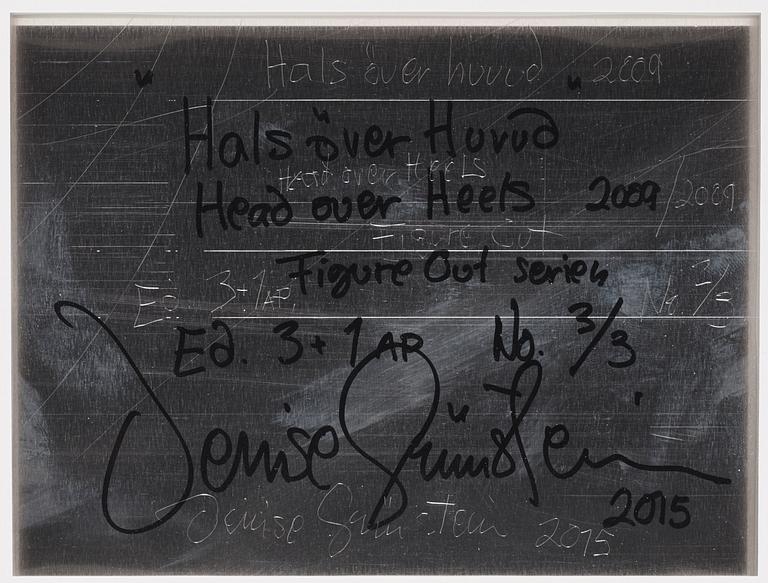 Hals över huvud 2009
"Hals över Huvud"
Head over Heels
Head over Heels 2009 / 2009
Figure Out
Figure Out serien
Ed. 3+1 AP. No. 3/3
Ed. 3+1 AP No. 3/3
Denise Grünstein
2015
Denise Grünstein 2015